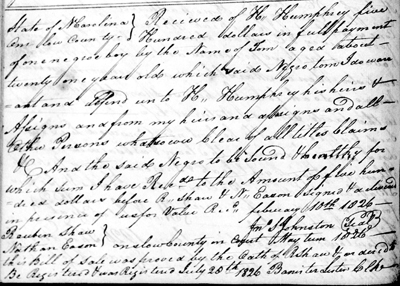 State of N Carolina } Recieved of H. Humphrey five
Onslow County } Hundred dollars in full payment
of one negro boy by the Name of Tom aged about
twenty one years old which said Negro Tom I do warr
ant and defend unto H. Humphrey his heirs &
Assigns and from my heirs and assigns and all
other Persons whatsoever Clear of all titles Claims
& And the said Negro to be Sound & healthy for
which sum I have Recd to the Amount of five hun
dred dollars before R. Shaw & N. Eason Signed & delivered
in presence of us for Value Recd february 10th 1826
Reuben Shaw Jn Johnston Seal
Nathan Eason } Onslow County in Court May term 1826
This Bill of Sale was proved by the Oath of R Shaw & ordered to
Be Registered & was Registered July 28th 1826